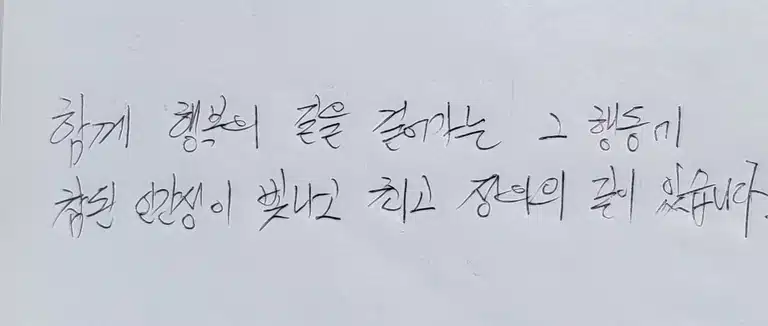 함께 행복의 길을 걸어가는 그 행동에
참된 인간성이 빛나고 최고 정의의 길이 있습니다.